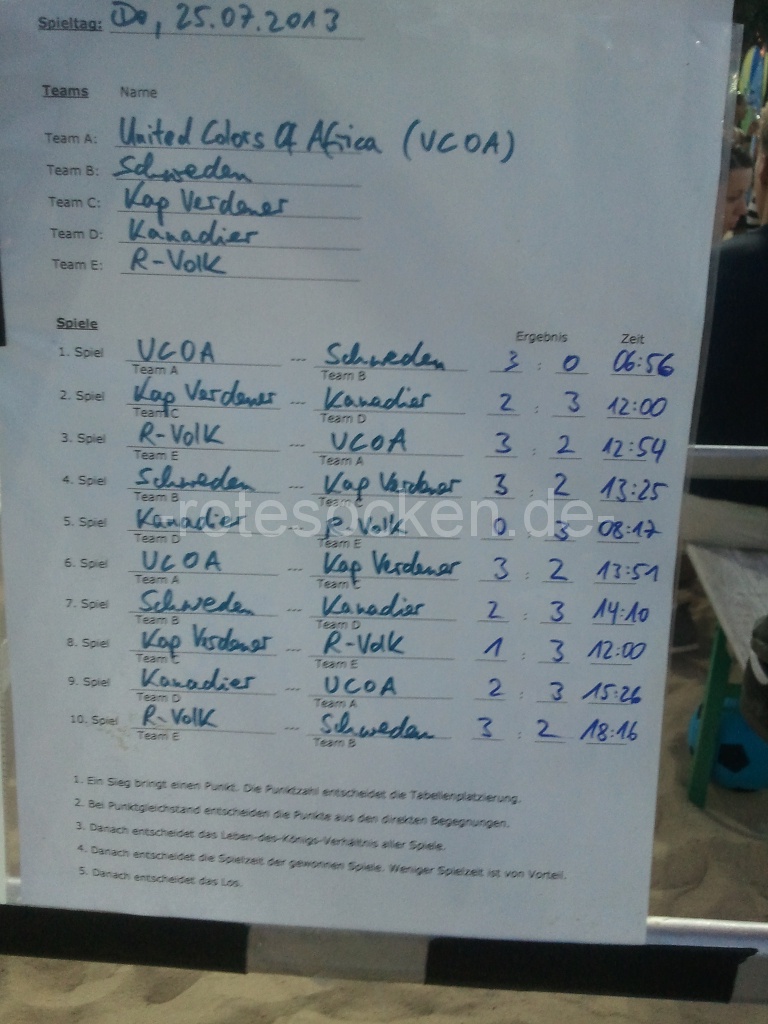 Spieltag: Do, 25.07.2013
Teams Name
Team A: United Colors Of Africa (UCOA)
Team B: Schweden
Team C: Kap Verdener
Team D: Kanadier
Team E: R-Volk
Spiele Ergebnis Zeit
1. Spiel UCOA --- Schweden 3 : 0 06:56
Team A Team B
2. Spiel Kap Verdener --- Kanadier 2 : 3 12:00
Team C Team D
3. Spiel R-Volk --- UCOA 3 : 2 12:54
Team E Team A
4. Spiel Schweden --- Kap Verdener 3 : 2 13:25
Team B Team C
-rotesocken.de-
5. Spiel Kanadier --- R-Volk 0 : 3 08:17
Team D Team E
6. Spiel UCOA --- Kap Verdener 3 : 2 13:51
Team A Team C
7. Spiel Schweden --- Kanadier 2 : 3 14:10
Team B Team D
8. Spiel Kap Verdener --- R-Volk 1 : 3 12:00
Team C Team E
9. Spiel Kanadier --- UCOA 2 : 3 15:26
Team D Team A
10. Spiel R-Volk --- Schweden 3 : 2 18:16
Team E Team B
1. Ein Sieg bringt einen Punkt. Die Punktzahl entscheidet die Tabellenplatzierung.
2. Bei Punktgleichstand entscheiden die Punkte aus den direkten Begegnungen.
3. Danach entscheidet das Leben-des-Königs-Verhältnis aller Spiele.
4. Danach entscheidet die Spielzeit der gewonnen Spiele. Weniger Spielzeit ist von Vorteil.
5. Danach entscheidet das Los.